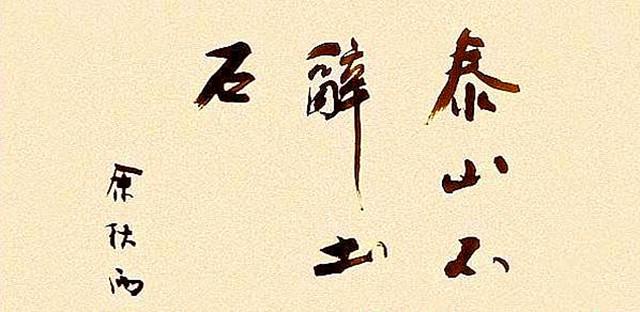 泰山不
辭土
石
余秋雨